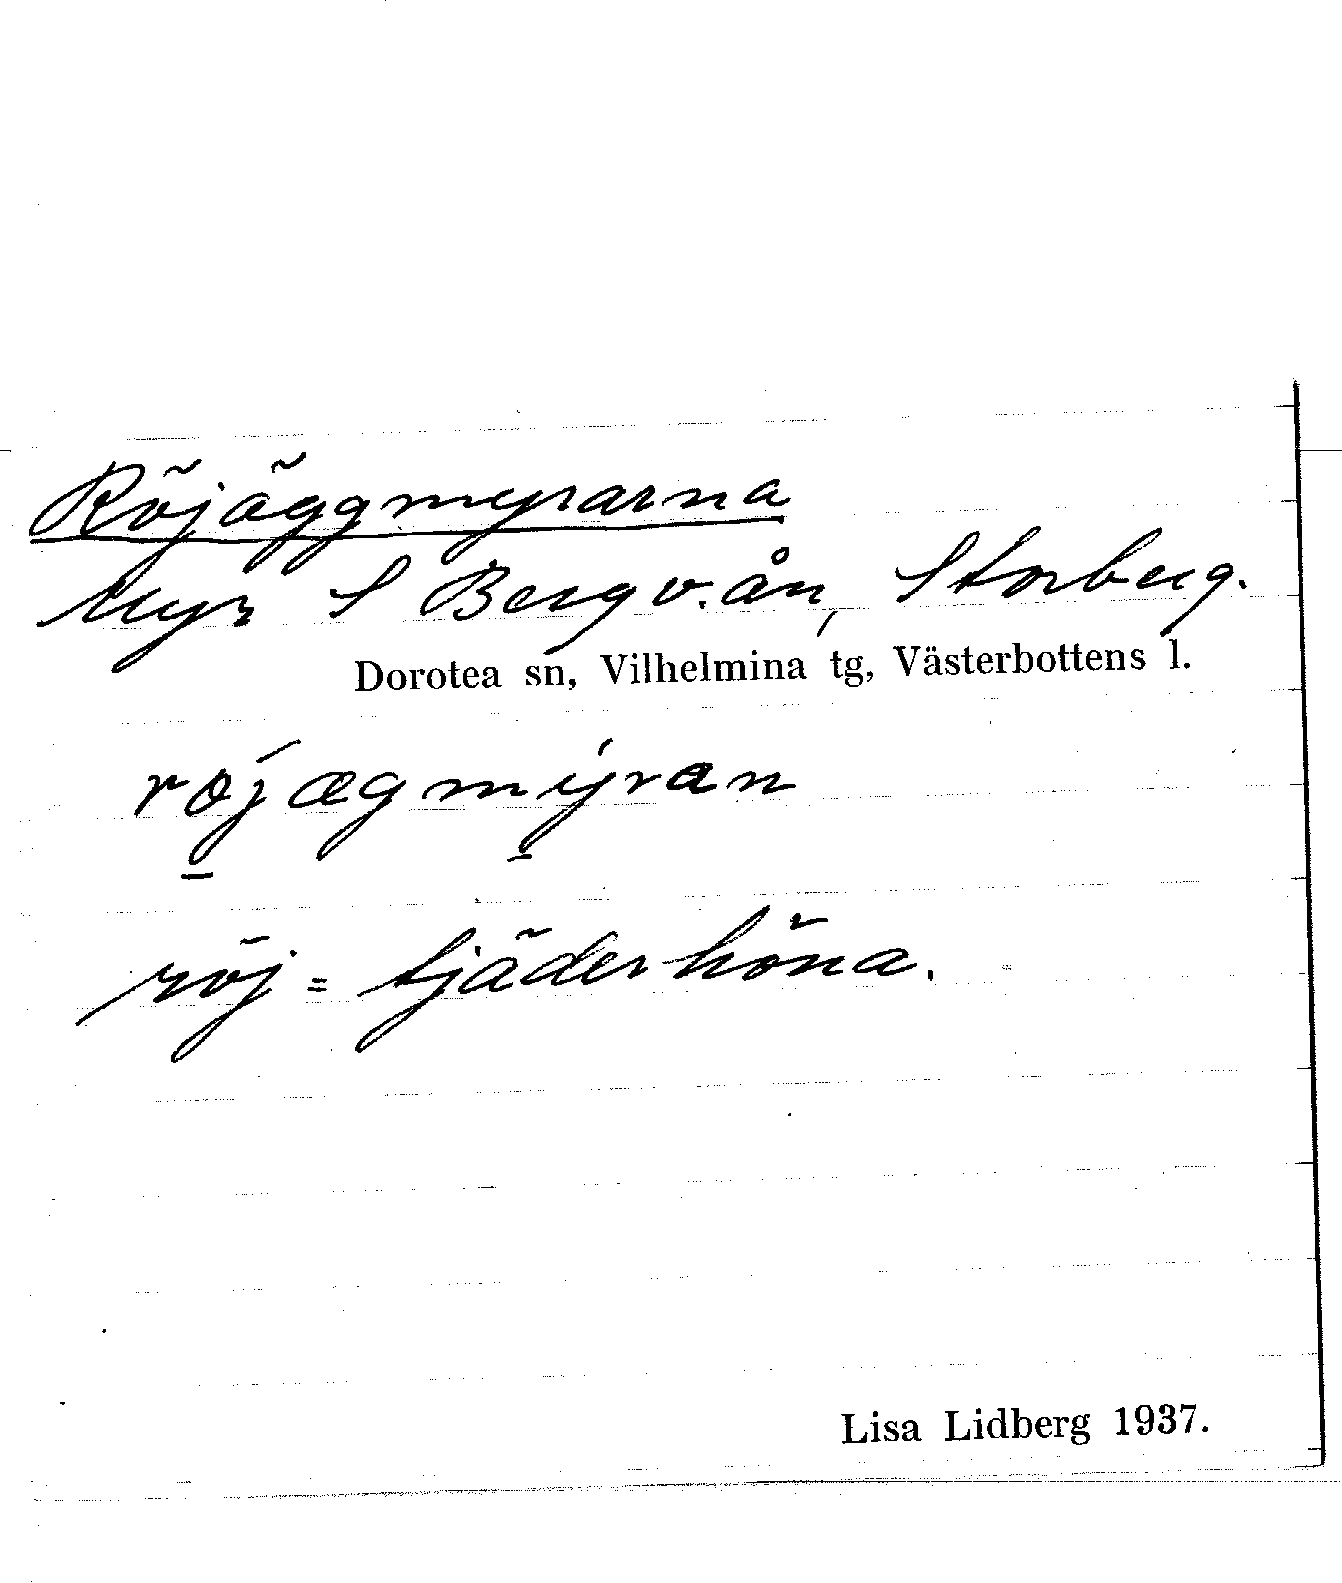 Röjäggmyrarna
Myr S Bergv.ån, Storberg.
Dorotea sn, Vilhelmina tg, Västerbottens l.
røjægmyran
röj = tjäderhöna.
Lisa Lidberg 1937.